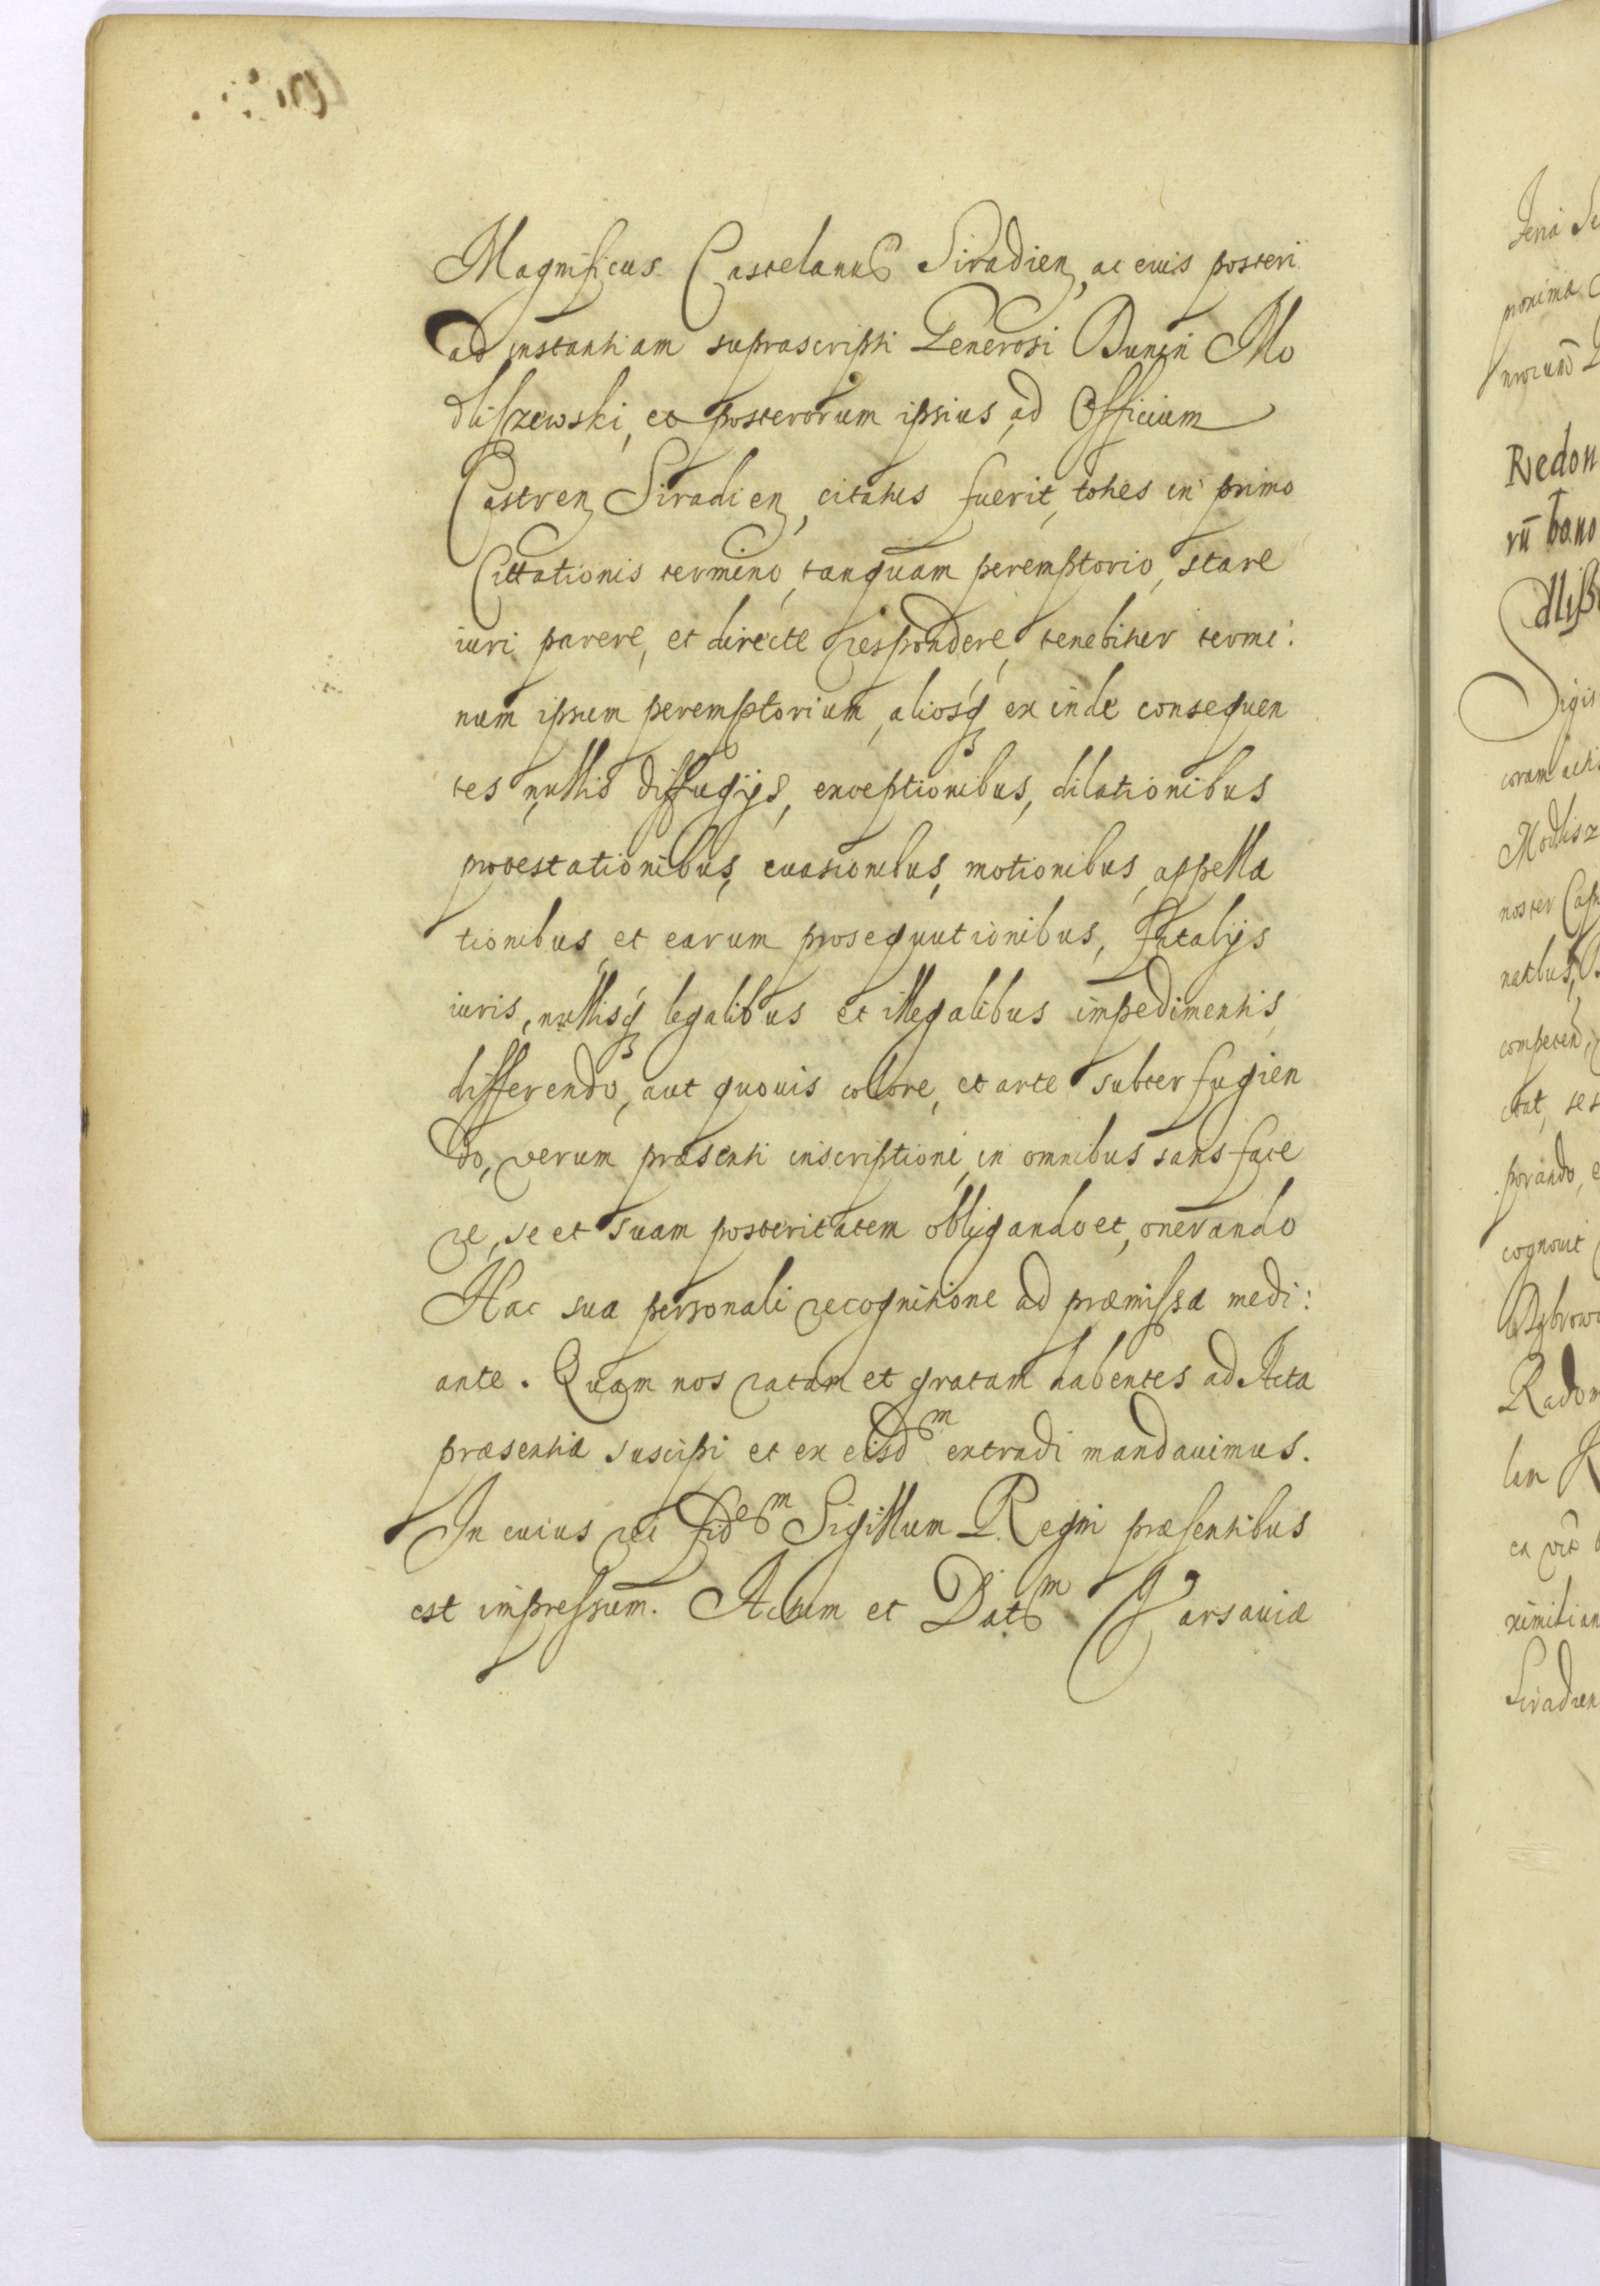 Magnificus Castelanus Siradien, ac euis posteri
ad instantiam suprascripti Generosi Dunin Mo
dliszewski, et posterorum ipsius, ad Officium
Castren Siradien, citatus fuerit, toties in primo
Cittationis termino, tanquam peremptorio, stare
iuri parere, et directe respondere, tenebitur termi:
num ipsum peremptorium, aliosq ex inde consequen
tes nullis diffugijs, exceptionibus, dilationibus
protestationibus, euasionibus, motionibus, appella
tionibus et earum prosequutionibus, Fatalijs
iuris, nullisq legalibus et illegalibus impedimentis,
differendo, aut quouis colore, et arte subterfugien
do, verum præsenti inscriptioni, in omnibus satisface
re, se et suam posteritatem obligando et, onerando
Hac sua personali recognitione ad præmissa medi:
ante. Quam nos ratam et gratam habentes ad Acta
præsentia suscipi et ex eisdm extradi mandauimus.
In cuius rei fidem Sigillum Regni præsentibus
est impressum. Actum et Datm Varsauiæ
Redon
rū bono
dliß
Sigis
coram actis
Modlisz
noster Cas
competen,
porando, e
cognouit
Radom
Siradien